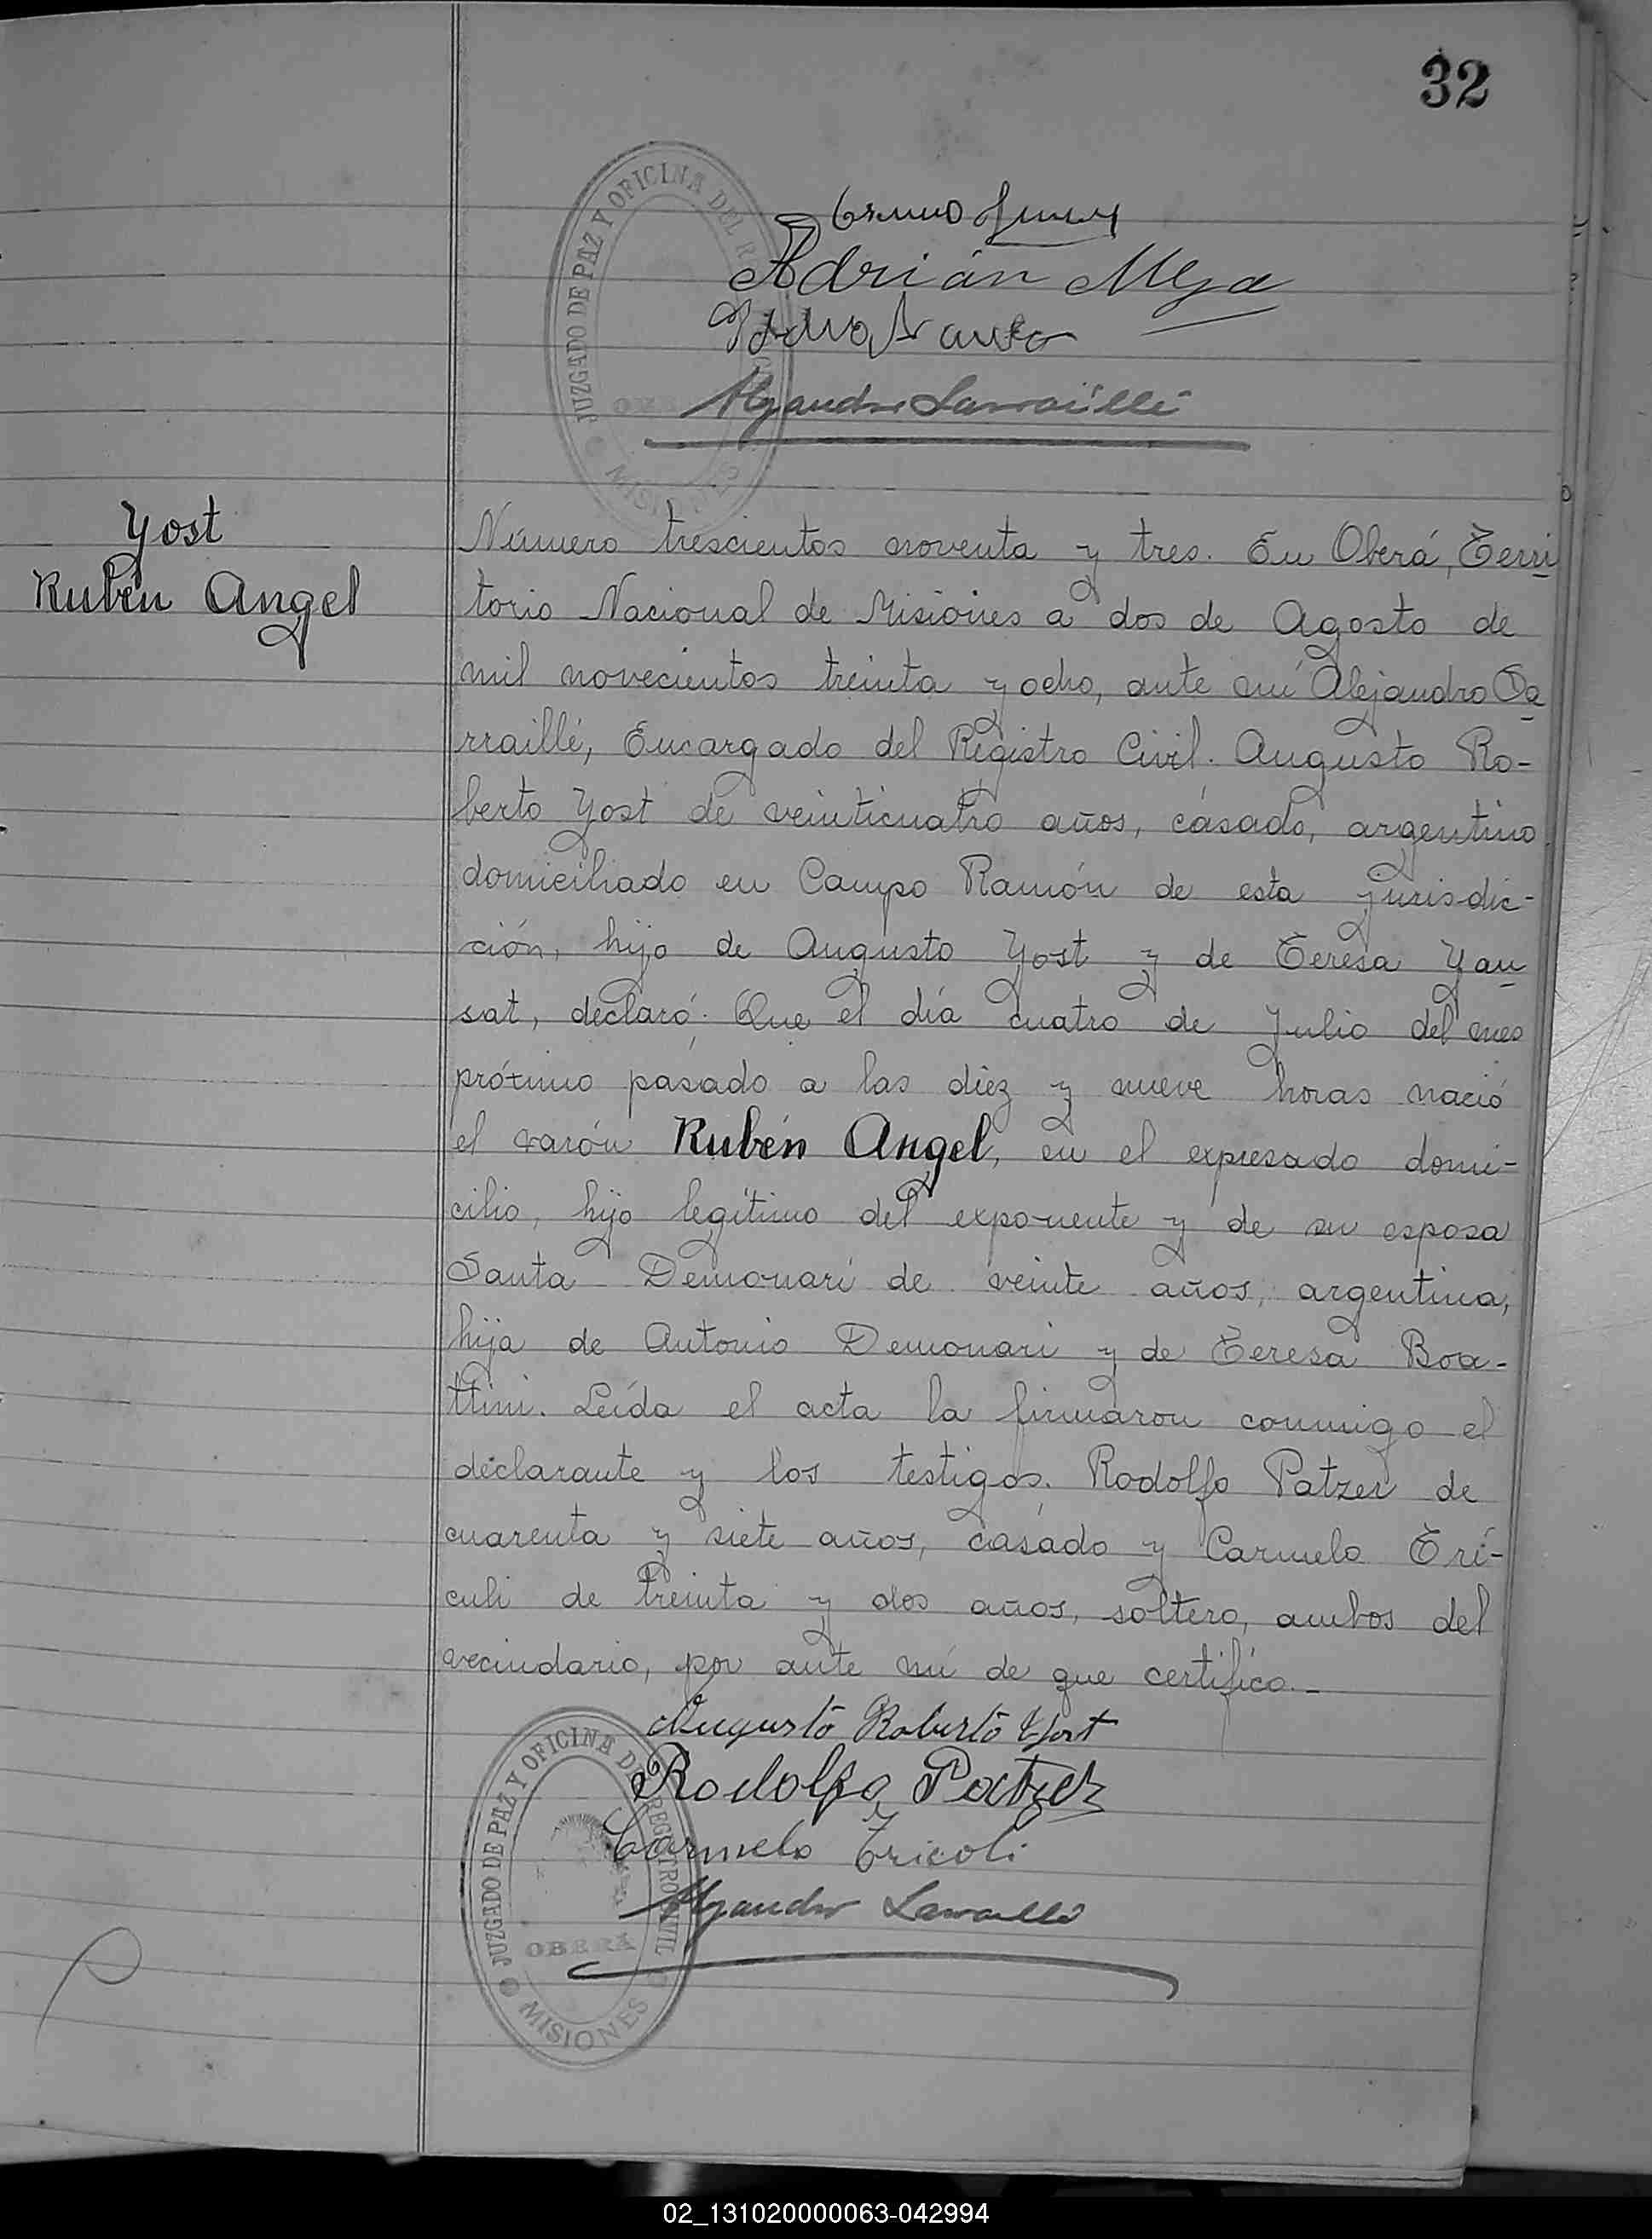 32
JUZGADO DE PAZ Y OFICINA DEL
MISIONES
Adrián
Yost
Rubén Angel
Número trescientos noventa y tres. En Oberá, Terri
torio Nacional de Misiones a dos de Agosto de
mil novecientos treinta y ocho, ante mí Alejandro La
rraillé, Encargado del Registro Civil. Augusto Ro-
berto Yost de veinticuatro años, casado, argentino
domiciliado en Campo Ramón de esta jurisdic-
ción, hijo de Augusto Yost y de Teresa Yau
sat, declaró: Que el día cuatro de Julio del mes
próximo pasado a las diez y nueve horas nació
el varón Rubén Angel, en el expresado domi-
cilio, hijo legítimo del exponente y de su esposa
Santa Demonari de veinte años, argentina,
hija de Antonio Demonari y de Teresa Boa-
ttini. Leída el acta la firmaron conmigo el
declarante y los testigos. Rodolfo Patzer de
cuarenta y siete años, casado y Carmelo Tri-
culi de treinta y dos años, soltero, ambos del
vecindario, por ante mí de que certifico.-
Augusto Roberto Yost
Rodolfo Patzer
Carmelo Tricoli
Alejandro Larraillé
JUZGADO DE PAZ Y OFICINA DEL REGISTRO CIVIL
OBERÁ
MISIONES
02_131020000063-042994